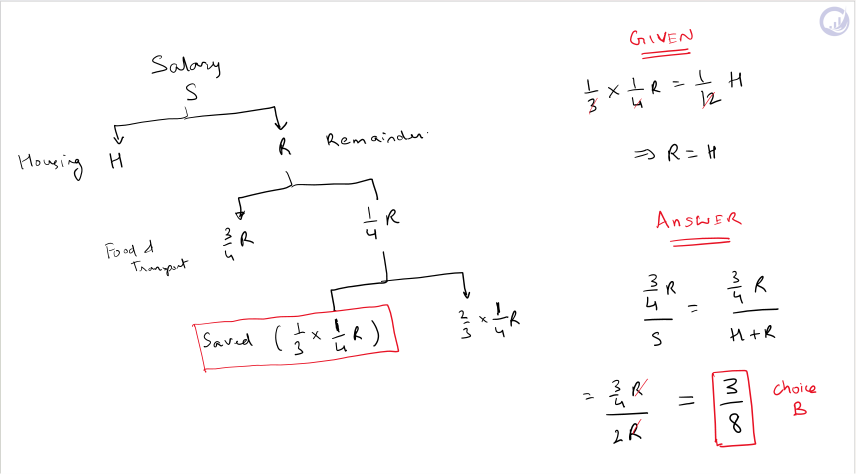 Salary
S
Housing H R Remainder.
Food & Transport 3/4 R 1/4 R
Saved (1/3 × 1/4 R) 2/3 × 1/4 R
GIVEN
1/3 × 1/4 R = 1/12 H
⇒ R = H
ANSWER
3/4 R / S = 3/4 R / H + R
= 3/4 R / 2R = 3/8 choice B